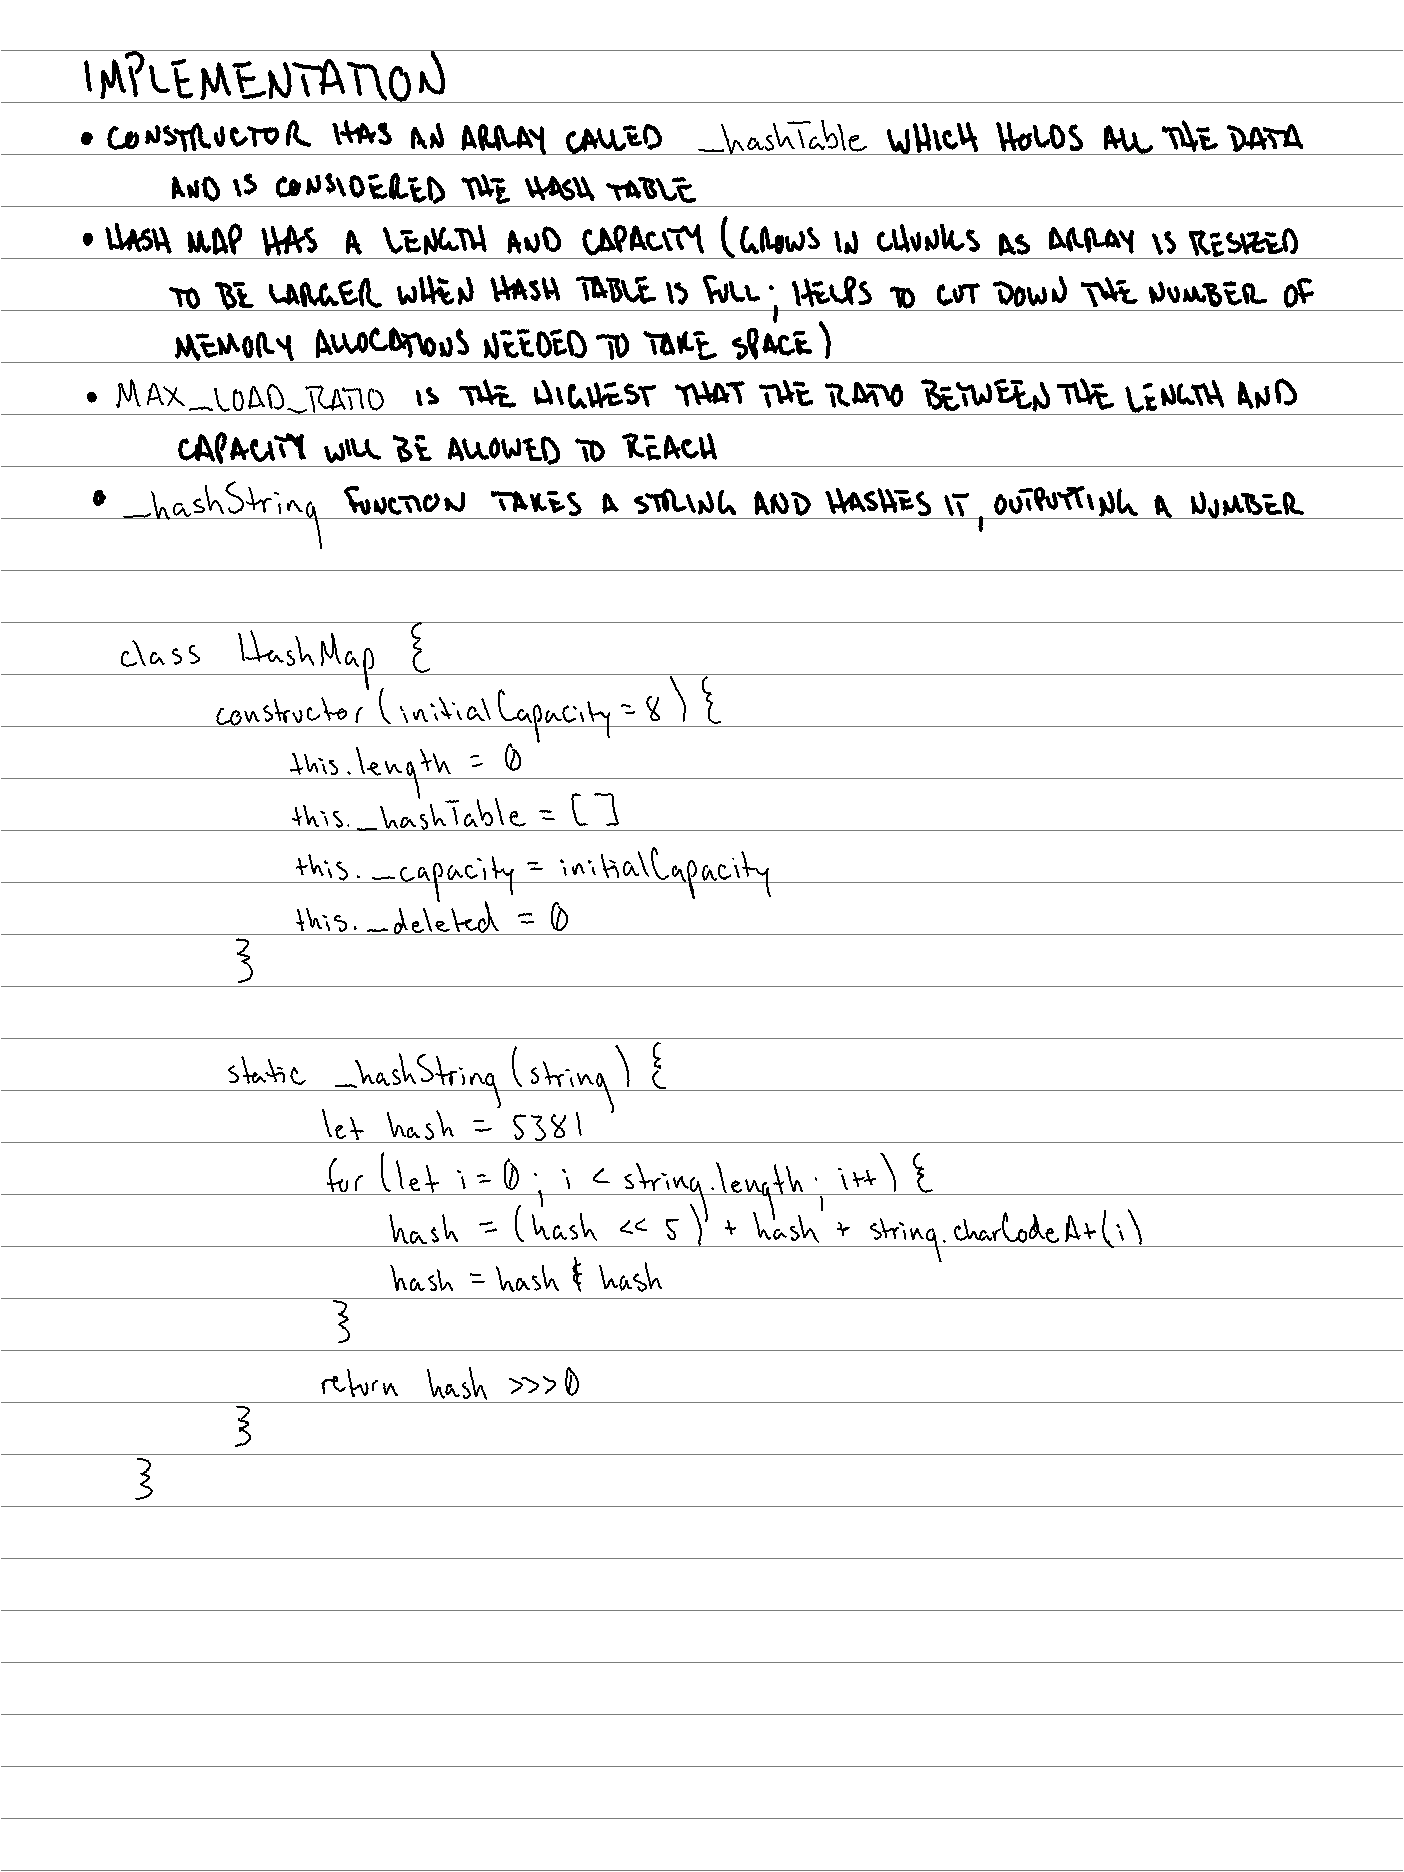 IMPLEMENTATION
• CONSTRUCTOR HAS AN ARRAY CALLED _hashTable WHICH HOLDS ALL THE DATA
AND IS CONSIDERED THE HASH TABLE
• HASH MAP HAS A LENGTH AND CAPACITY (GROWS IN CHUNKS AS ARRAY IS RESIZED
TO BE LARGER WHEN HASH TABLE IS FULL; HELPS TO CUT DOWN THE NUMBER OF
MEMORY ALLOCATIONS NEEDED TO TAKE SPACE)
• MAX_LOAD_RATIO IS THE HIGHEST THAT THE RATIO BETWEEN THE LENGTH AND
CAPACITY WILL BE ALLOWED TO REACH
• _hashString FUNCTION TAKES A STRING AND HASHES IT, OUTPUTTING A NUMBER
class HashMap {
constructor (initialCapacity = 8) {
this.length = 0
this._hashTable = []
this._capacity = initialCapacity
this._deleted = 0
}
static _hashString (string) {
let hash = 5381
for (let i = 0; i < string.length; i++) {
hash = (hash << 5) + hash + string.charCodeAt(i)
hash = hash & hash
}
return hash >>> 0
}
}